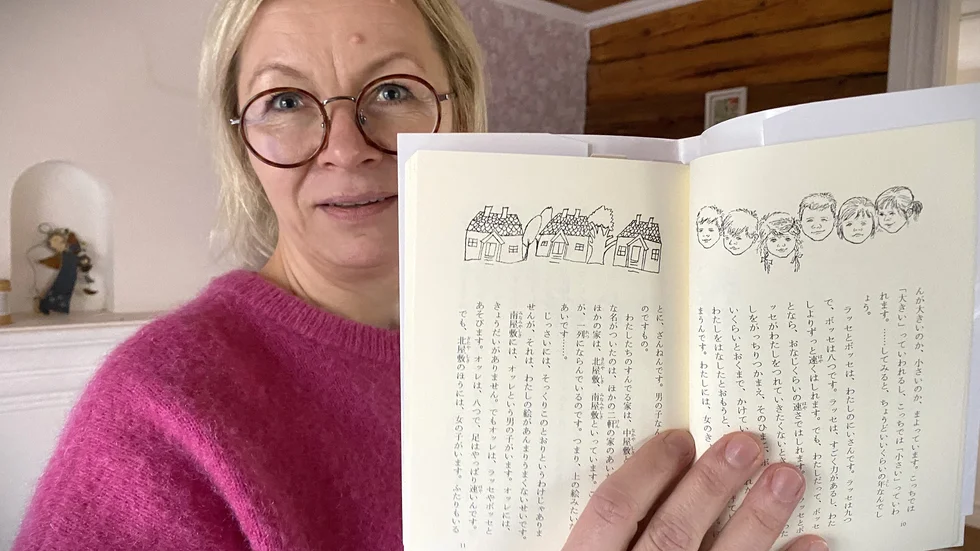 んが大きいのか、小さいのか、まよっています。こっちでは
「大きい」っていわれるし、こっちでは「小さい」っていわ
れます。……してみると、ちょうどいいくらいの年なんでし
ょう。
ラッセとボッセは、わたしのにいさんです。ラッセは九つ
で、ボッセは八つです。ラッセは、すごく力があるし、わた
しよりずっと速くはしれます。でも、わたしだって、ボッセ
となら、おなじくらいの速さではしれます。ラッセとボ
ッセがわたしをつれていきたくないと
しをがっちりつかまえ、そのひまに、ボ
いくらいとおくまで、かけてい
わたしをはなしたとおもうと、
まうんです。わたしには、女のき
10
とに、ざんねんです。男の子な
のですもの。
わたしたちのすんでる家は、中屋敷
な名がついたのは、ほかの二軒の家のあい
ほかの家は、北屋敷、南屋敷といっています。
が、一列にならんでいるのです。つまり、上の絵みたい
あいです……。
じっさいには、そっくりこのとおりというわけじゃありま
せんが、それは、わたしの絵があんまりうまくないせいです。
南屋敷には、オッレという男の子がいます。オッレには、
きょうだいがありません。でもオッレは、ラッセやボッセと
あそびます。オッレは、八つで、足はやっぱり速いんです。
でも、北屋敷のほうには、女の子がいます。ふたりもいる
11